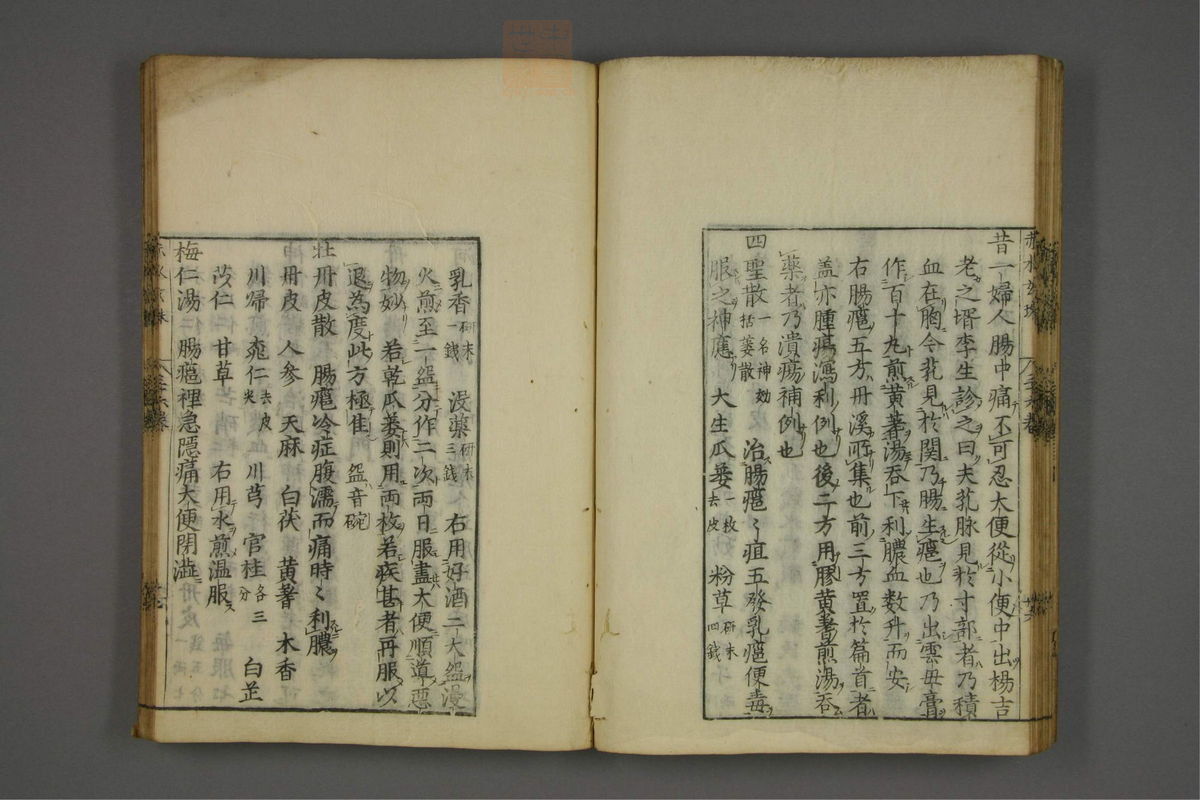 昔一婦人腸中痛不可忍大便從小便中出楊吉
老之壻李生診之曰夫芤脉見於寸部者乃積
血在胸今芤見於関乃腸生癰也乃出雲毋膏
作百十九煎黄蓍湯吞下利膿血数升而安
右腸癰五方丹溪所集也前三方置於篇首者
盖亦腫瘍瀉利例也後二方用膠黄蓍煎湯吞
藥者乃潰瘍補例也
四聖散一名神効括蔞散 治腸癰〻疽五發乳癰便毒
服之神應 大生瓜蔞一枚去皮 粉草研末四銭
乳香研末一銭 没藥研末三銭 右用好酒二大盌漫
火煎至一盌分作二次両日服盡大便順道惡
物妙 若乾瓜蔞則用両枚若疾甚者再服以
退為度此方極佳 盌音碗
牡丹皮散 腸癰冷症腹濡而痛時〻利膿
丹皮 人参 天麻 白茯 黄蓍 木香
川歸 桃仁去皮尖 川芎 官桂各三分 白芷
苡仁 甘草 右用水煎温服
梅仁湯 腸癰裡急隠痛大便閉澁